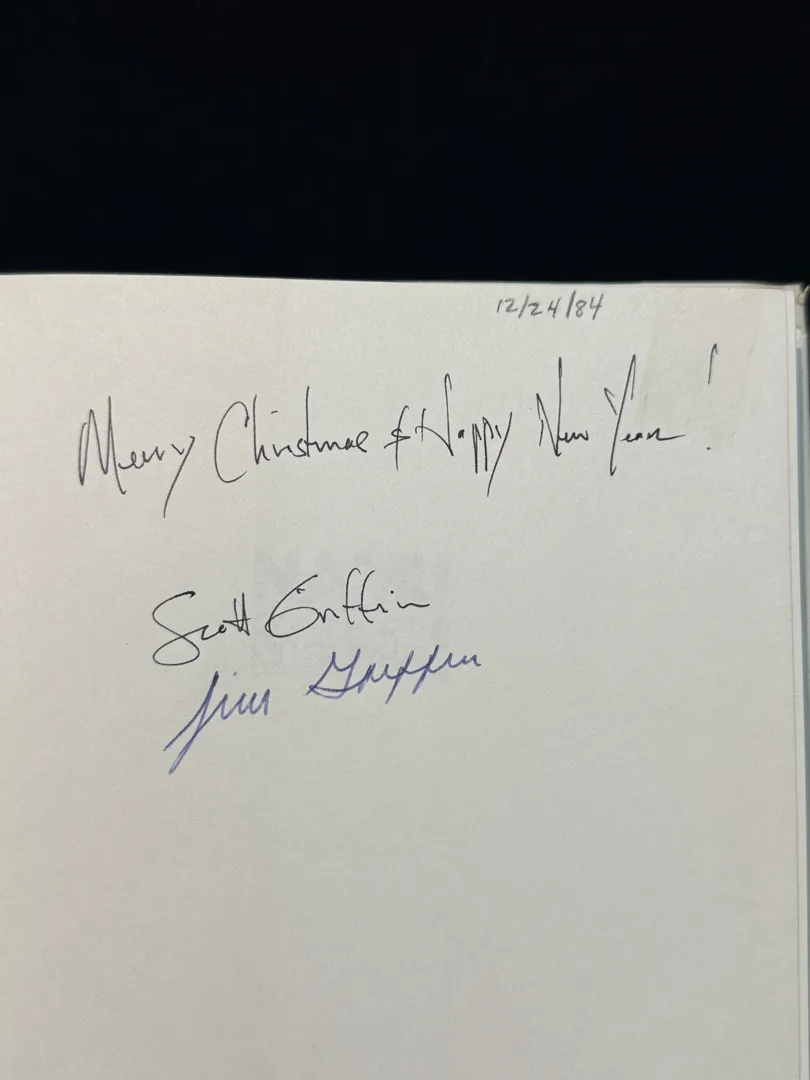 12/24/84
Merry Christmas & Happy New Year!
Scott Griffin
Jim Griffin